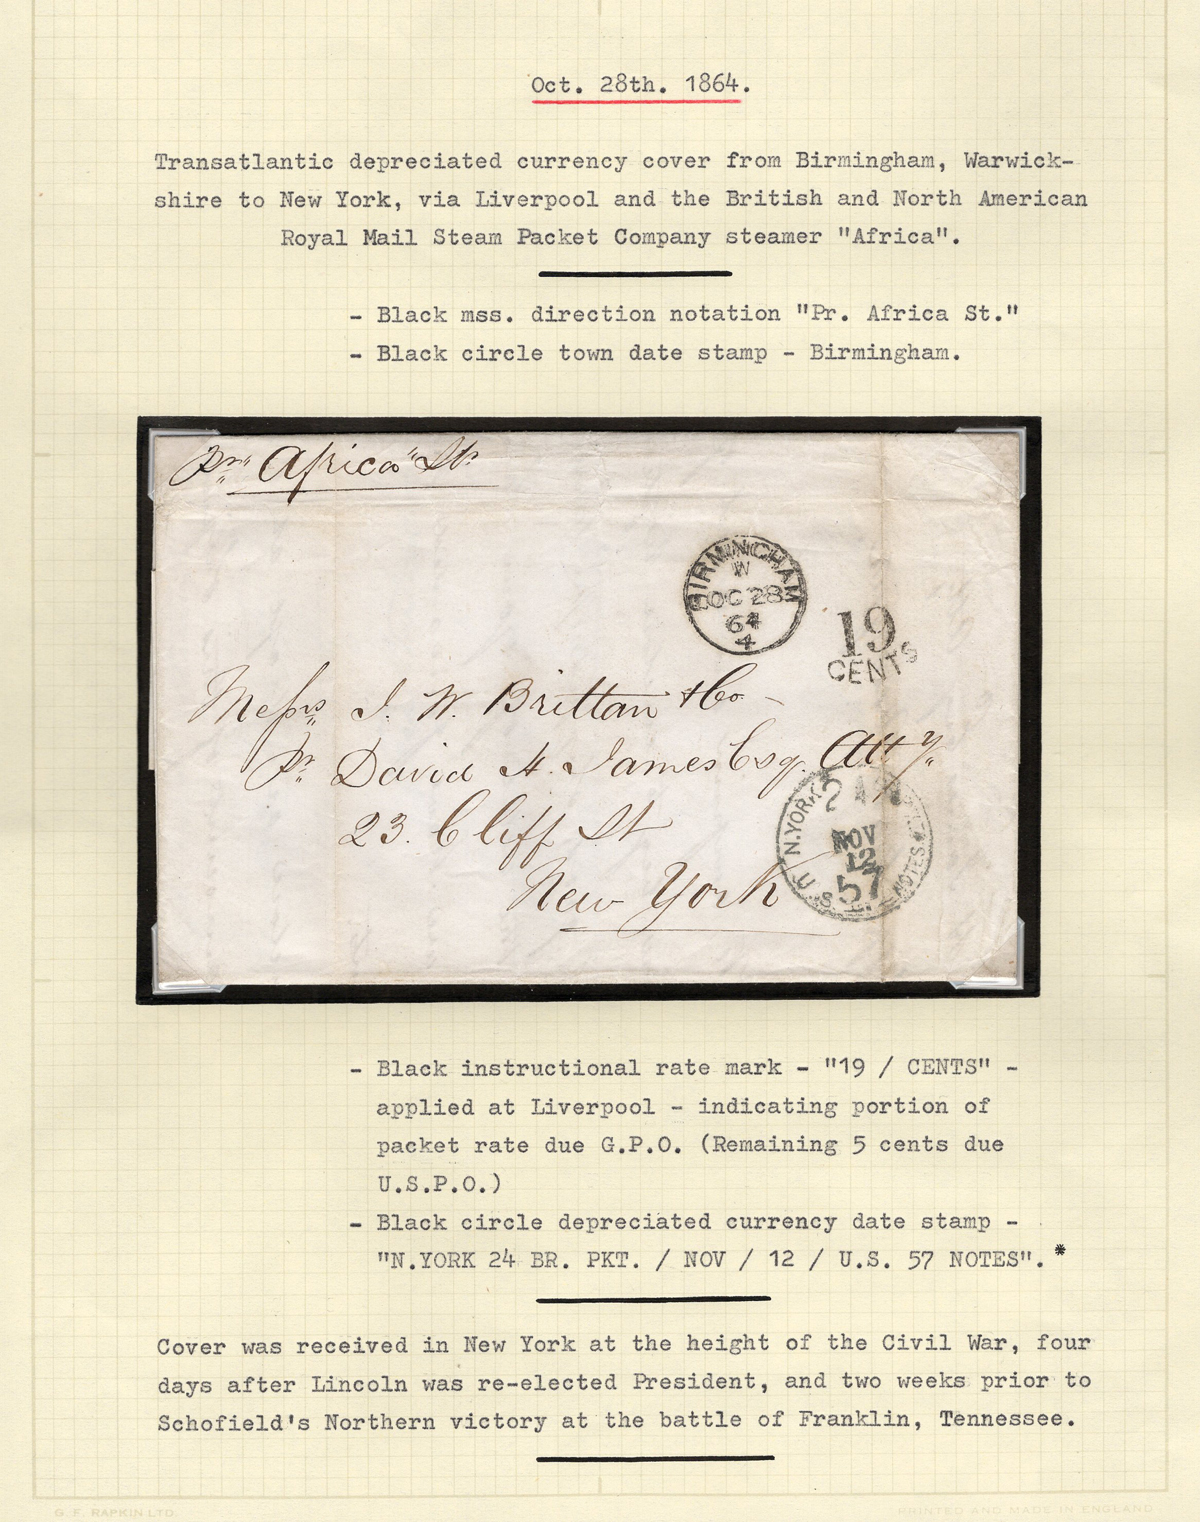 Oct. 28th. 1864.
Transatlantic depreciated currency cover from Birmingham, Warwick-
shire to New York, via Liverpool and the British and North American
Royal Mail Steam Packet Company steamer "Africa".
- Black mss. direction notation "Pr. Africa St."
- Black circle town date stamp - Birmingham.
Pr "Africa" Str
BIRMINGHAM
W
OC 28
64
4
19
CENTS
Messrs J. W. Brittan & Co
Pr David H. James Esq. Atty.
23. Cliff St
New York
N.YORK 24
NOV
12
U.S. 57 NOTES
- Black instructional rate mark - "19 / CENTS" -
applied at Liverpool - indicating portion of
packet rate due G.P.O. (Remaining 5 cents due
U.S.P.O.)
- Black circle depreciated currency date stamp -
"N.YORK 24 BR. PKT. / NOV / 12 / U.S. 57 NOTES".*
Cover was received in New York at the height of the Civil War, four
days after Lincoln was re-elected President, and two weeks prior to
Schofield's Northern victory at the battle of Franklin, Tennessee.
G. F. RAPKIN LTD.
PRINTED AND MADE IN ENGLAND